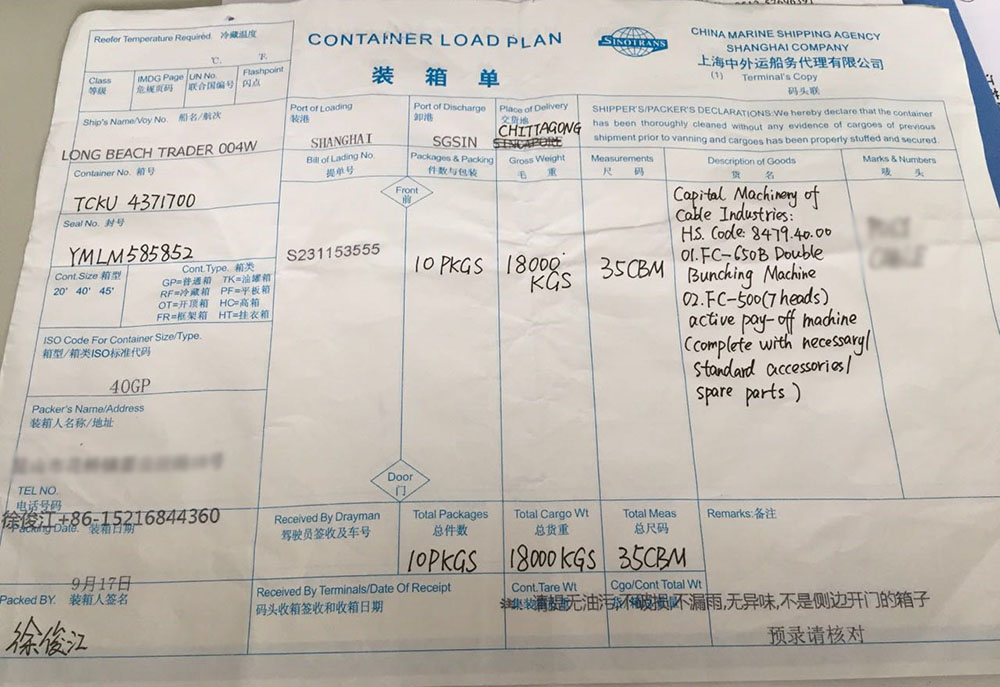 Reefer Temperature Required. 冷藏温度
℃. ℉.
CONTAINER LOAD PLAN
装 箱 单
SINOTRANS
CHINA MARINE SHIPPING AGENCY
SHANGHAI COMPANY
上海中外运船务代理有限公司
(1) Terminal's Copy
码头联
Class 等级
IMDG Page 危规页码
UN No. 联合国编号
Flashpoint 闪点
Ship's Name/Voy No. 船名/航次
LONG BEACH TRADER 004W
Port of Loading 装港
SHANGHAI
Port of Discharge 卸港
SGSIN
Place of Delivery 交货地
CHITTAGONG
SINGAPORE
SHIPPER'S/PACKER'S DECLARATIONS:We hereby declare that the container
has been thoroughly cleaned without any evidence of cargoes of previous
shipment prior to vanning and cargoes has been properly stuffed and secured.
Container No. 箱号
TCKU 4371700
Bill of Lading No. 提单号
Packages & Packing 件数与包装
Gross Weight 毛 重
Measurements 尺 码
Description of Goods 货 名
Marks & Numbers 唛 头
Front 前
Seal No. 封号
YMLM585852
S231153555
10 PKGS
18000 KGS
35CBM
Capital Machinery of
Cable Industries:
HS. Code: 8479.40.00
01.FC-650B Double
Bunching Machine
02.FC-500(7 heads)
active pay-off machine
(complete with necessary/
Standard accessories/
spare parts )
Cont.Size 箱型
20' 40' 45'
Cont.Type. 箱类
GP=普通箱 TK=油罐箱
RF=冷藏箱 PF=平板箱
OT=开顶箱 HC=高箱
FR=框架箱 HT=挂衣箱
ISO Code For Container Size/Type.
箱型/箱类ISO标准代码
40GP
Packer's Name/Address
装箱人名称/地址
Door 门
TEL NO.
电话号码
徐俊江+86-15216844360
Packing Date. 装箱日期
9月17日
Received By Drayman
驾驶员签收及车号
Total Packages 总件数
10PKGS
Total Cargo Wt 总货重
18000KGS
Total Meas 总尺码
35CBM
Remarks:备注
Packed BY. 装箱人签名
徐俊江
Received By Terminals/Date Of Receipt
码头收箱签收和收箱日期
Cont.Tare Wt
Cgo/Cont Total Wt
请提无油污,不破损,不漏雨,无异味,不是侧边开门的箱子
预录请核对